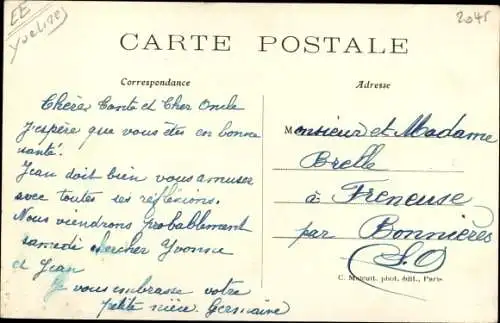 EE
Yvelines
2045
CARTE POSTALE
Correspondance
Adresse
Chère Tante et Cher Oncle
J'espère que vous êtes en bonne
santé.
Jean doit bien vous amuser
avec toutes ses réflexions.
Nous viendrons probablement
samedi chercher Yvonne
et Jean
Je vous embrasse votre
petite nièce Germaine
Monsieur et Madame
Brelle
à Freneuse
par Bonnières
S.O
C. phot. édit., Paris